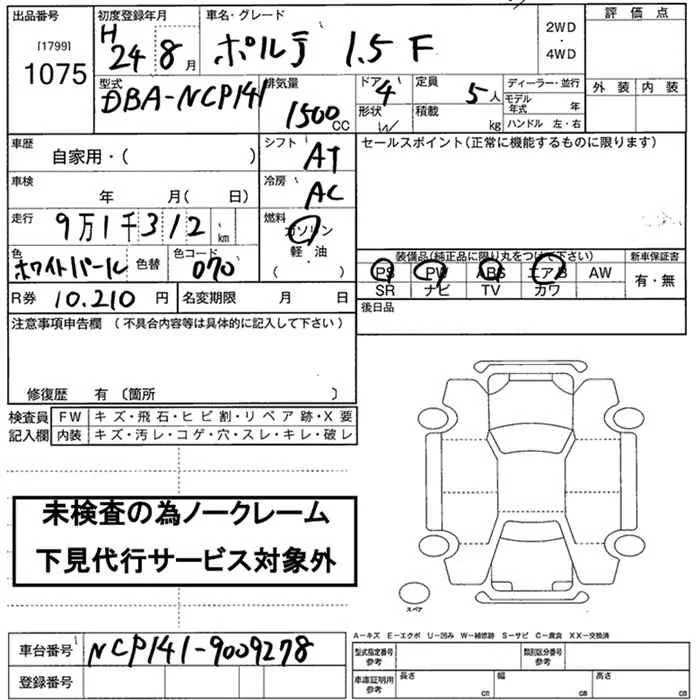 出品番号 初度登録年月 車名・グレード 評価点
[1799]
1075
H
24 8月
ポルテ 1.5 F
2WD
・
4WD
外装 内装
型式 排気量 ドア 定員 ディーラー・並行
DBA-NCP141 1500CC 4 5人
モデル年式 年
形状 W 積載 kg
ハンドル 左・右
車歴 シフト セールスポイント(正常に機能するものに限ります)
自家用・( ) AT
車検 冷房
年 月( 日) AC
走行 燃料
9万1千312km ガソリン
軽・油
色 色替 色コード
ホワイトパール 070
装備品(純正品に限り丸をつけて下さい) 新車保証書
PS PW ABS エアB AW 有・無
SR ナビ TV カワ
R券 10.210円 名変期限 月 日 後日品
注意事項申告欄 (不具合内容等は具体的に記入して下さい)
修復歴 有 (箇所 )
検査員 FW キズ・飛石・ヒビ割・リペア跡・X要
記入欄 内装 キズ・汚レ・コゲ・穴・スレ・キレ・破レ
未検査の為ノークレーム
下見代行サービス対象外
スペア
A-キズ E-エクボ U-凹み W-補修跡 S-サビ C-腐食 XX-交換済
車台番号 NCP141-9009278
型式指定番号 参考 類別区分番号 参考
登録番号
車庫証明用 参考 長さ cm 幅 cm 高さ cm